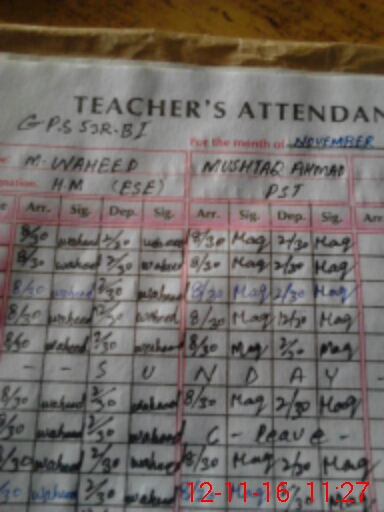 TEACHER'S ATTENDAN
G P.S 53R-BI
For the month of NOVEMBER
M. WAHEED MUSHTAQ AHMAD
H.M (ESE) PST
Arr. Sig. Dep. Sig. Arr. Sig. Dep. Sig. Arr
8/30 waheed 2/30 waheed 8/30 Maq 2/30 Maq
8/30 waheed 2/30 waheed 8/30 Maq 2/30 Maq
8/30 waheed 2/30 waheed 8/30 Maq 2/30 Maq
8/30 waheed 12/30 waheed 8/30 Maq 12/30 Maq
8/30 waheed 2/30 waheed 8/30 Maq 2/30 Maq
- - S U N D A Y
8/30 waheed 2/30 waheed 8/30 Maq 2/30 Maq
8/30 waheed 2/30 waheed C - Leave -
8/30 waheed 2/30 waheed 8/30 Maq 2/30 Maq
/30 waheed 2/30 waheed Maq
12-11-16 11:27